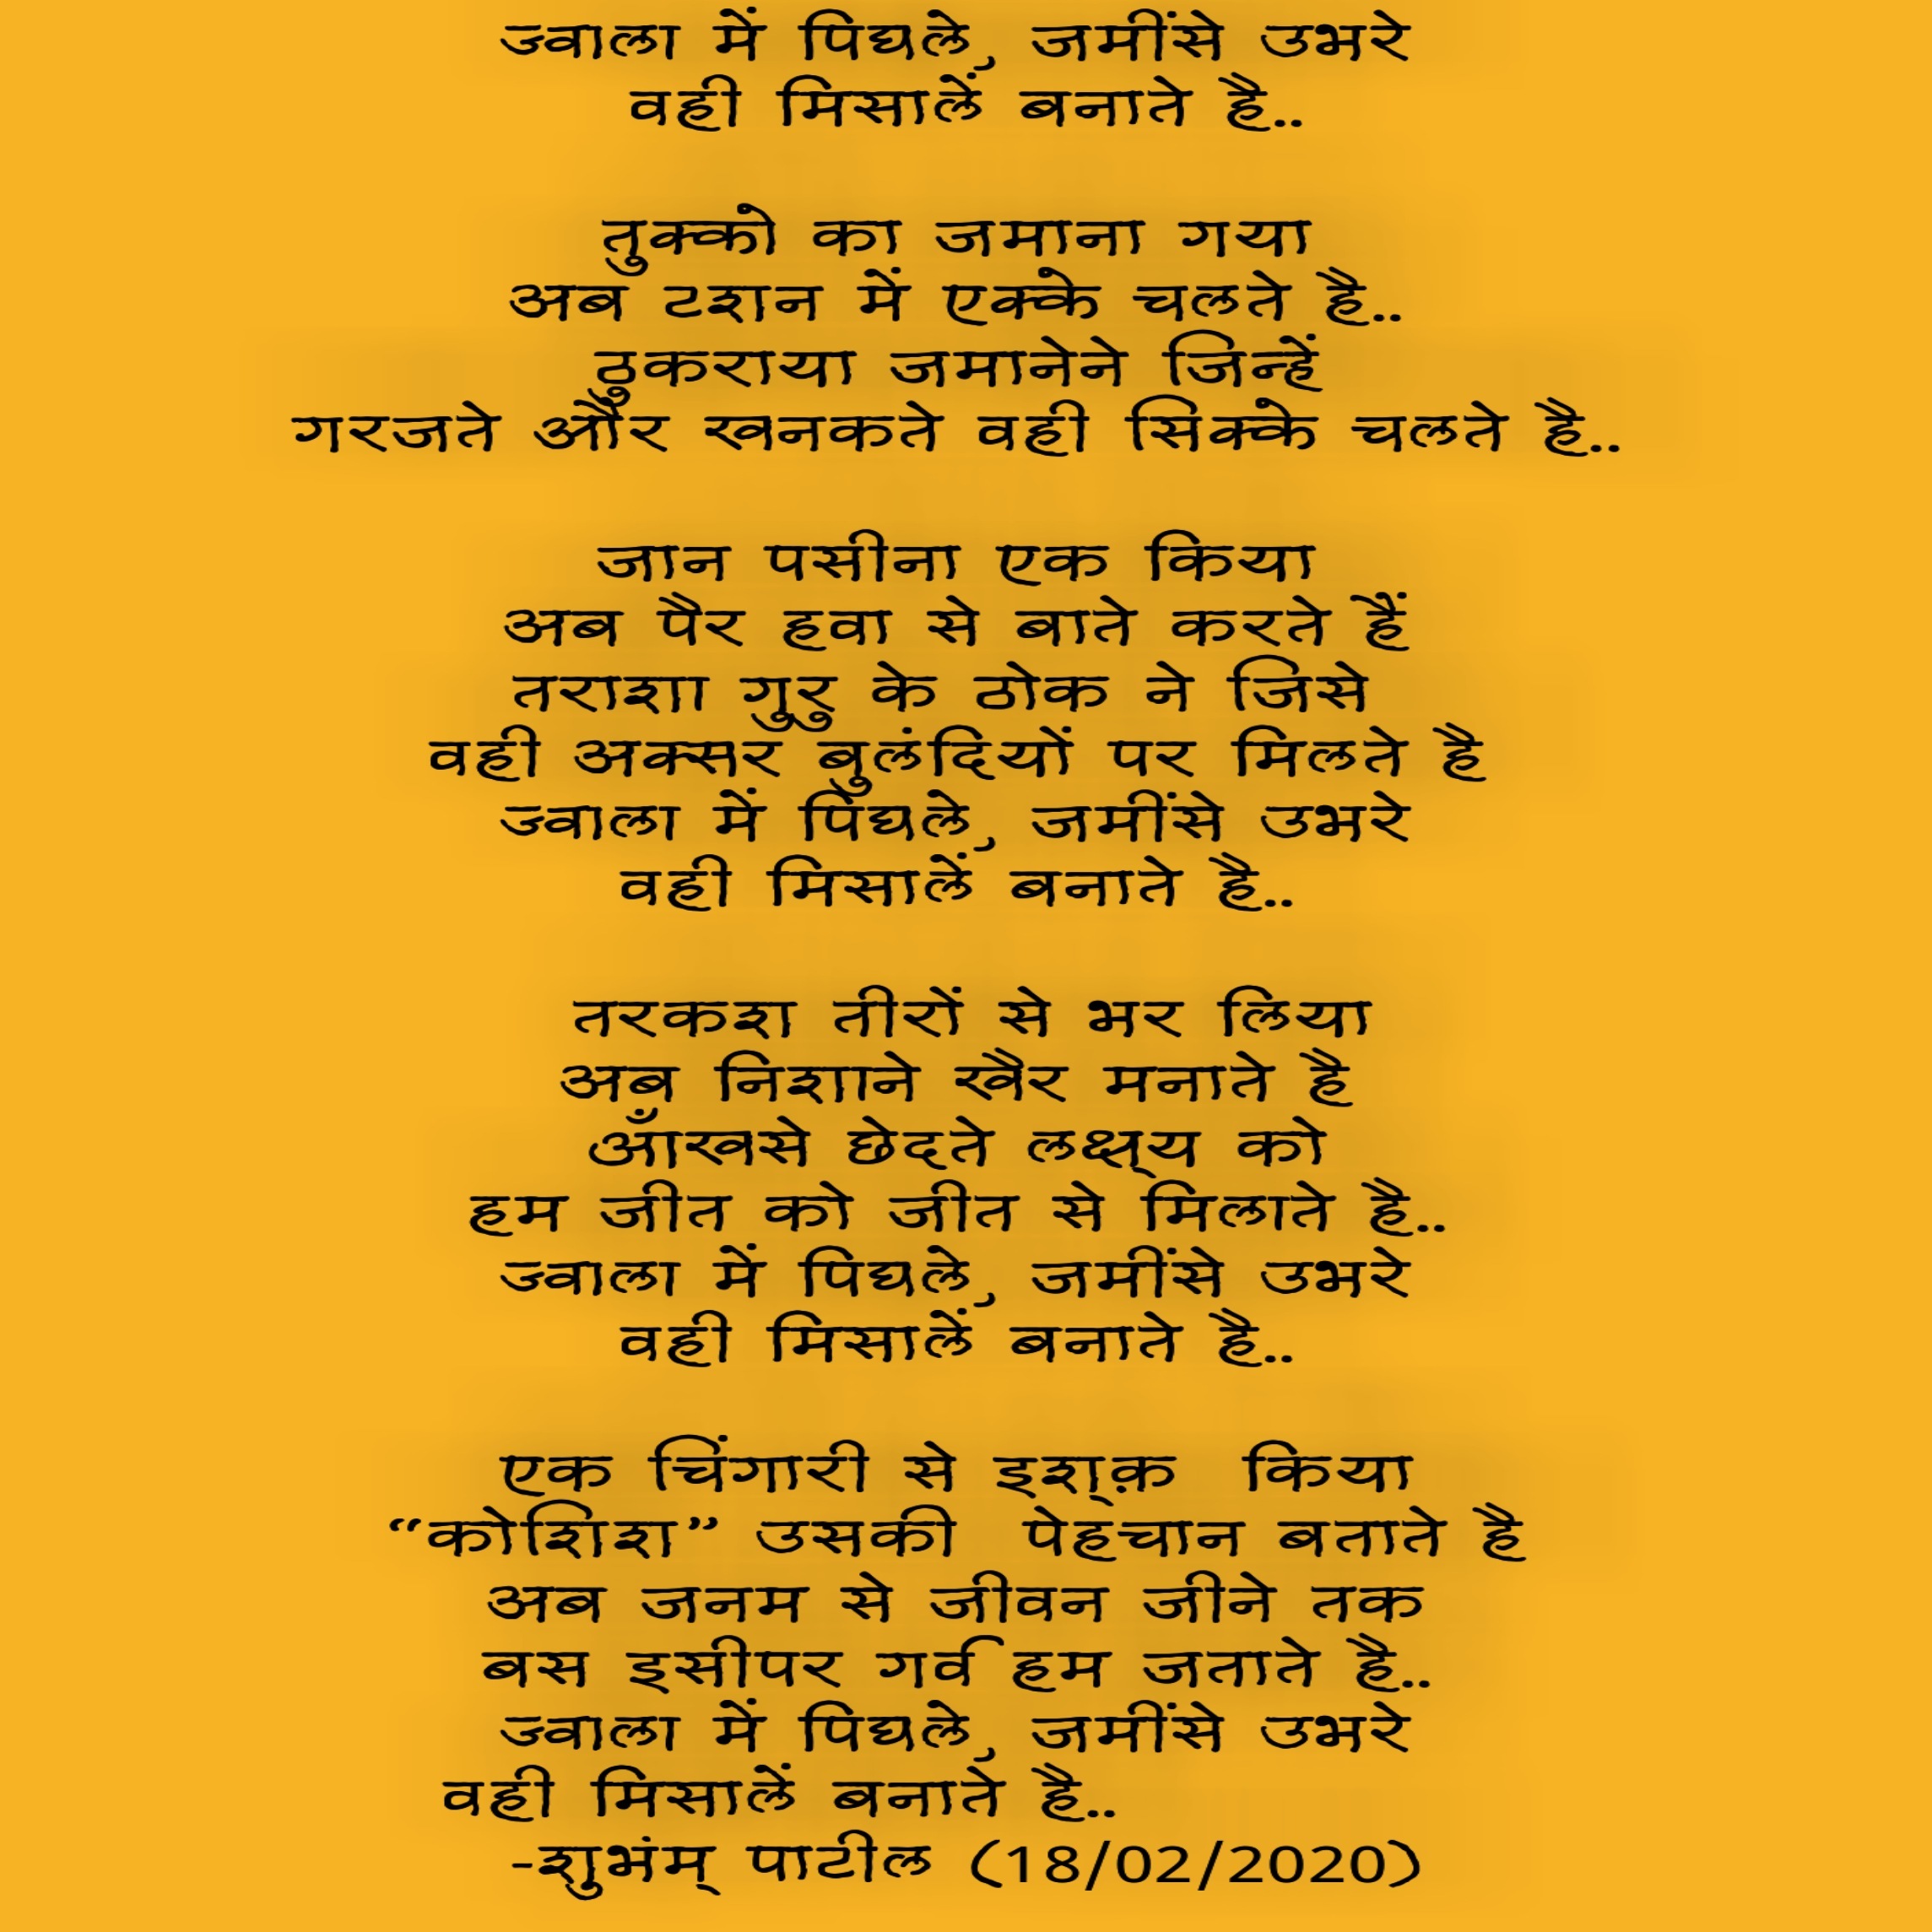 ज्वाला में पिघले, जमींसे उभरे
वही मिसालें बनाते है..
तुक्को का जमाना गया
अब टशन में एक्के चलते है..
ठुकराया जमानेने जिन्हें
गरजते और खनकते वही सिक्के चलते है..
जान पसीना एक किया
अब पैर हवा से बाते करते हैं
तराशा गुरु के ठोक ने जिसे
वही अक्सर बुलंदियों पर मिलते है
ज्वाला में पिघले, जमींसे उभरे
वही मिसालें बनाते है..
तरकश तीरों से भर लिया
अब निशाने खैर मनाते है
आँखसे छेदते लक्ष्य को
हम जीत को जीत से मिलाते है..
ज्वाला में पिघले, जमींसे उभरे
वही मिसालें बनाते है..
एक चिंगारी से इश्क़ किया
“कोशिश” उसकी पेहचान बताते है
अब जनम से जीवन जीने तक
बस इसीपर गर्व हम जताते है..
ज्वाला में पिघले, जमींसे उभरे
वही मिसालें बनाते है..
-शुभंम् पाटील (18/02/2020)